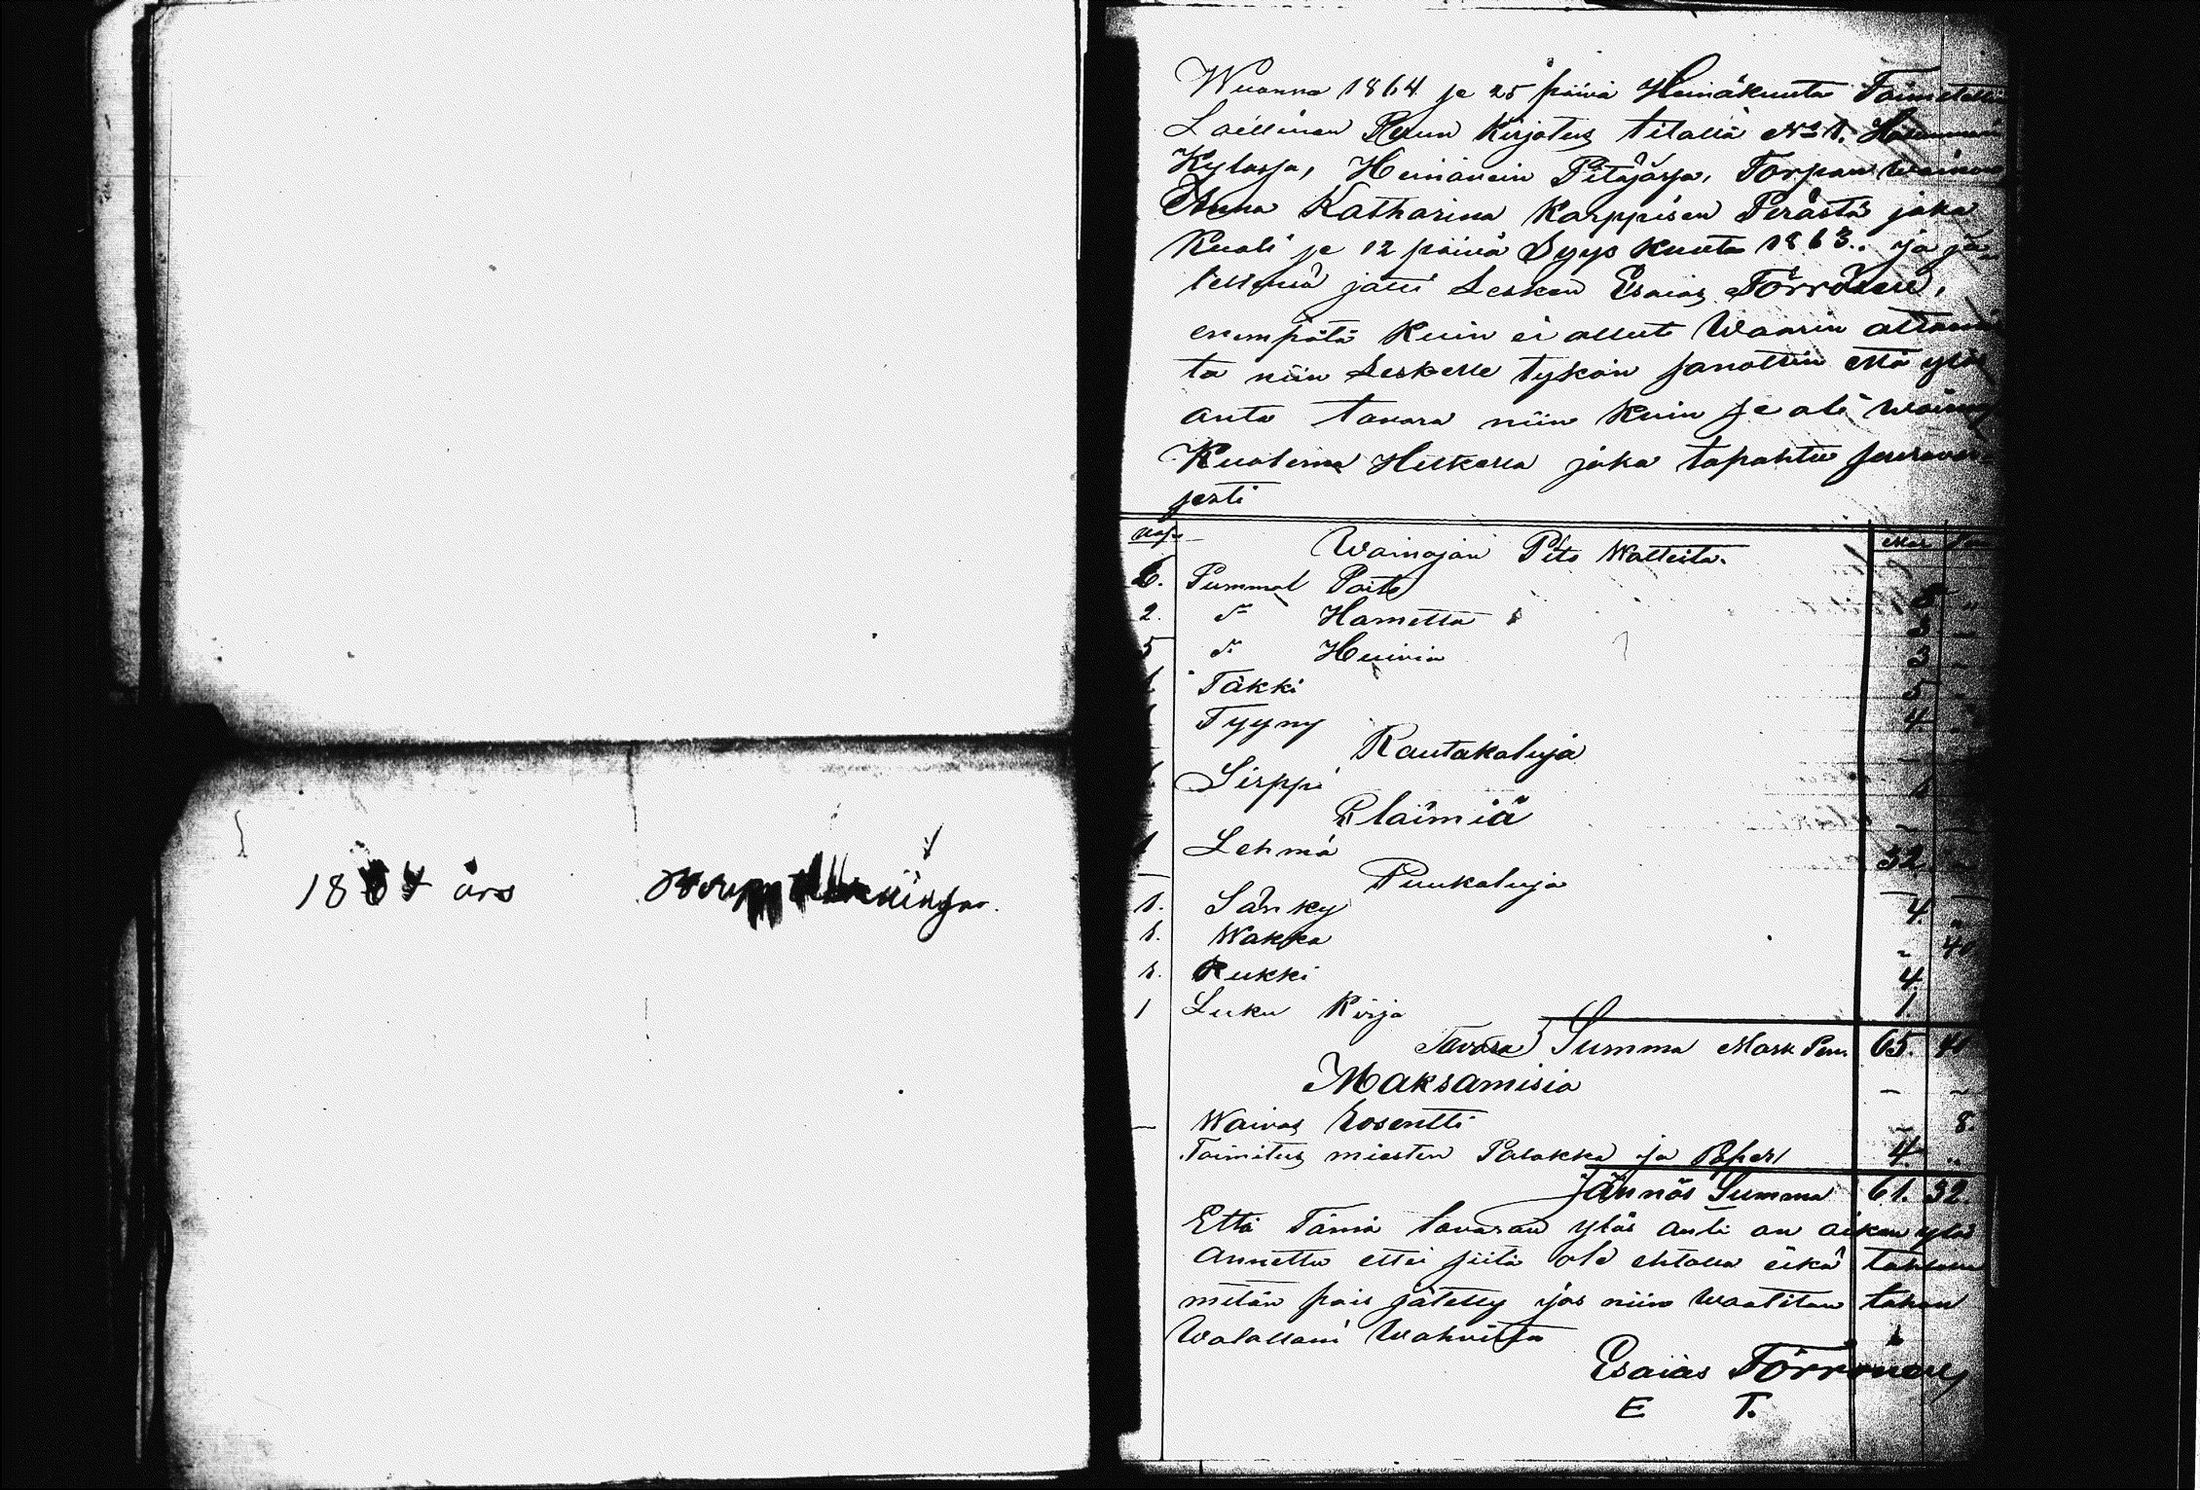 1864 års
Wuonna 1864 je 25 päivä Heinäkuuta Toimitettin
Laillinen Ruun Kirjotus tilalla No 1.
Kylässä, Heinävein Pitäjässä, Torpan Waimon
Anna Katharina Karppisen Perästä joka
Kuoli je 12 päivä Syys kuuta 1863. ja jä-
lellensä jätti Lesken Esaias Törrösen,
enempätä Kuin ei ollut Waarin
ta niin Leskelle tykön sanottiin että ylös
anta tavara niin Kuin se oli waimon
Kuoleman Hetkellä joka tapahtu
sesti
Waimojan Pito Watteita.
6. Pummol Paita 5 "
2. do Hametta 3 -
5 do Huivia 3 -
Täkki 5 -
Tyyny 4
Rautakaluja -
Sirppi 1
Elaimiä -
1 Lehmä 32
Puukaluja
1. Sänky 4 -
1. Wakka - 40
1. Rukki 4
1 Luku Kirja 1
Tavara Summa Mark Pen. 65. 40
Maksamisia - -
- Waivas Prosentti - 8.
Toimitus miesten Palakka ja Paperi 4. "
Jäännös Summa 61. 32
Että Tämä tavaran ylös anti on oiken ylös
annettu ettei siitä ole ehtolla eikä tahdolla
mitän pois jätetty jos niin waaditan tahon
Walallani Wahvista
Esaias Törrönen
E T.